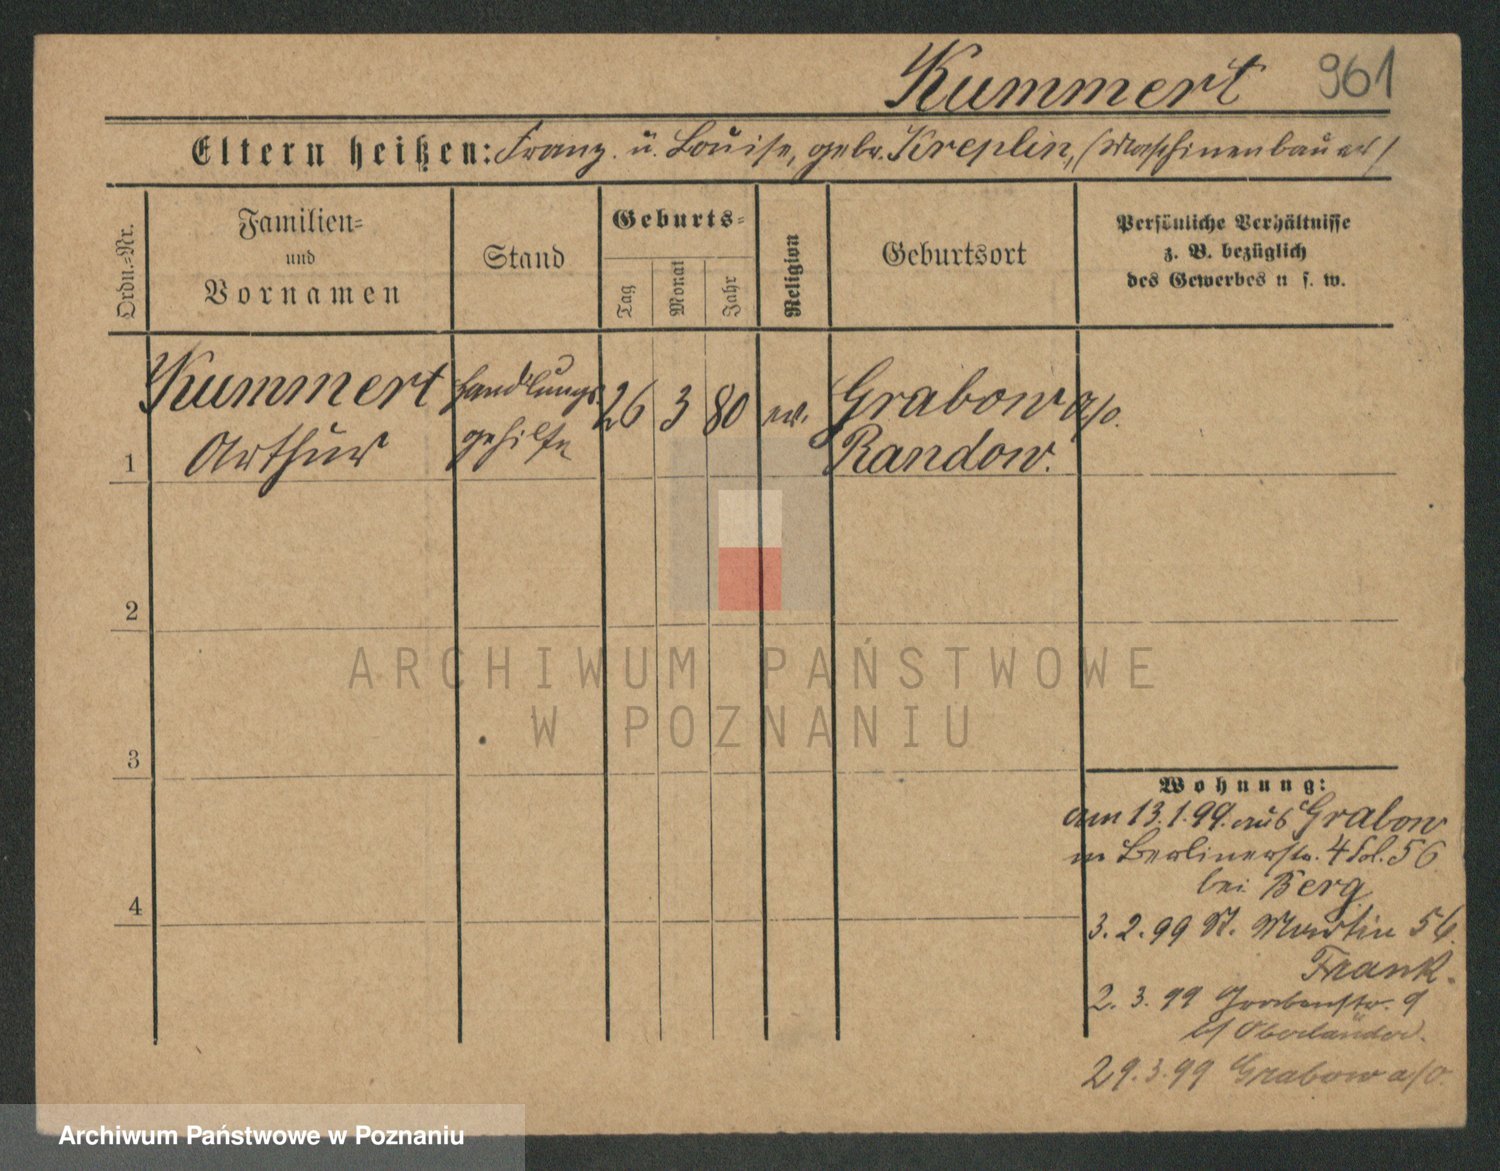 Kummert 961
Eltern heißen: Franz. u. Louise, gebr. Kreplin, (Maschinenbauer)
Ordn.=Nr.
Familien=
und
Vornamen
Stand
Geburts=
Tag
Monat
Jahr
Religion
Geburtsort
Persönliche Verhältnisse
z. B. bezüglich
des Gewerbes u s. w.
Kummert
Arthur
Handlungs
gehilfe
26 3 80 ev.
Grabow a/o.
Randow.
1
2
3
4
Wohnung:
am 13.1.99. aus Grabow
n Berlinerstr. 4 Fol. 56
bei Berg
3. 2. 99 St. Martin 56.
Frank.
2. 3. 99 Grabenstr. 9
b/ Oberländer.
29.3.99 Grabow a/o.
ARCHIWUM PAŃSTWOWE
W POZNANIU
Archiwum Państwowe w Poznaniu